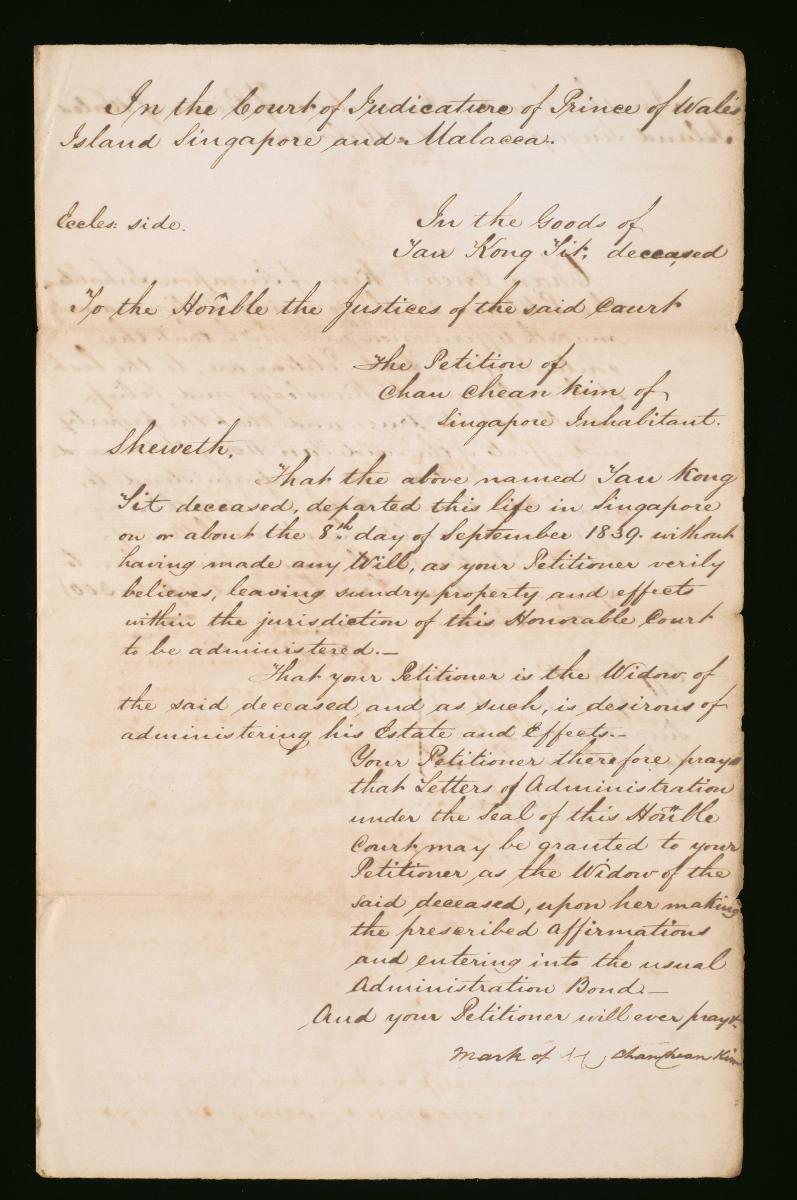 In the Court of Judicature of Prince of Wales
Island Singapore and Malacca.
Eccles: side.
In the Goods of
Tan Kong Sit, deceased
To the Hon̄ble the Justices of the said Court
The Petition of
Chan Chean Kim of
Singapore Inhabitant.
Sheweth,
That the above named Tan Kong
Sit deceased, departed this life in Singapore
on or about the 8th day of September 1839. without
having made any Will, as your Petitioner verily
believes, leaving sundry property and effects
within the jurisdiction of this Honorable Court
to be administered.—
That your Petitioner is the Widow of
the said deceased and as such, is desirous of
administering his Estate and Effects.—
Your Petitioner therefore prays
that Letters of Administration
under the Seal of this Hon̄ble
Court may be granted to your
Petitioner as the Widow of the
said deceased, upon her making
the prescribed Affirmations
and entering into the usual
Administration Bond.—
And your Petitioner will ever pray &.
Mark of Chan Chean Kim